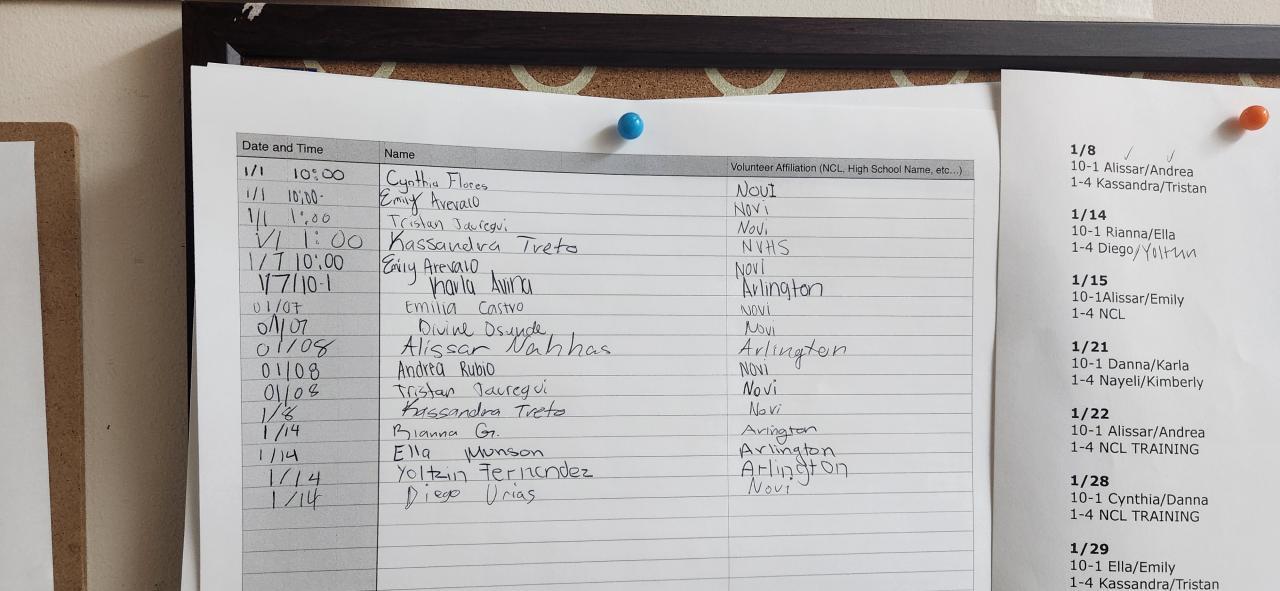 Date and Time Name Volunteer Affiliation (NCL, High School Name, etc...)
1/1 10:00 Cynthia Flores NOVI
1/1 10:00- Emily Arevalo Novi
1/1 1:00 Tristan Jauregui Novi
1/1 1:00 Kassandra Treto NVHS
1/7 10:00 Emily Arevalo Novi
1/7/10-1 Karla Avina Arlington
01/07 Emilia Castro Novi
01/07 Divine Osunde Novi
01/08 Alissar Nahhas Arlington
01/08 Andrea Rubio Novi
01/08 Tristan Jauregui Novi
1/8 Kassandra Treto Novi
1/14 Rianna Gr. Arington
1/14 Ella Munson Arlington
1/14 Yoltzin Fernendez Arlington
1/14 Diego Urias Novi
1/8
10-1 Alissar/Andrea
1-4 Kassandra/Tristan
1/14
10-1 Rianna/Ella
1-4 Diego/
1/15
10-1Alissar/Emily
1-4 NCL
1/21
10-1 Danna/Karla
1-4 Nayeli/Kimberly
1/22
10-1 Alissar/Andrea
1-4 NCL TRAINING
1/28
10-1 Cynthia/Danna
1-4 NCL TRAINING
1/29
10-1 Ella/Emily
1-4 Kassandra/Tristan